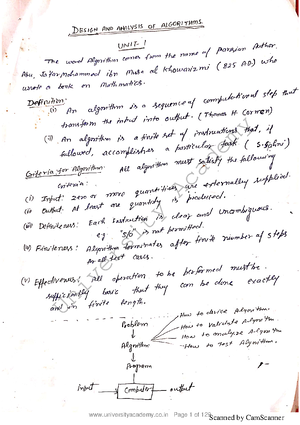 DESIGN AND ANALYSIS OF ALGORITHMS.
UNIT-1
The word Algorithm comes from the name of Persian Author,
Abu, Ja'far Mohammed ibn Musa al Khowarizmi (825 AD) who
wrote a book on Mathematics.
Definition:
(i) An algorithm is a sequence of computational steps that
transform the input into output. (Thomas H Cormen)
(ii) An algorithm is a finite set of instructions that, if
followed, accomplishes a particular task (S. Sahni)
Criteria for Algorithm: All algorithm must satisfy the following
criteria:
(i) Input: zero or more quantities are externally supplied.
(ii) Output: At least one quantity is produced.
(iii) Definiteness: Each instruction is clear and unambiguous.
eg: 5/0 is not permitted.
(iv) Finiteness: Algorithm terminates after finite number of steps
for all test cases.
(v) Effectiveness: All operation to be performed must be
sufficiently basic that they can be done exactly
and in finite length.
Problem
How to devise Algorithm.
How to validate Algorithm.
Algorithm
How to analyze Algorithm.
How to Test Algorithm.
Program
Input
Computer
output
www.universityacademy.co.in Page 1 of 129
Scanned by CamScanner